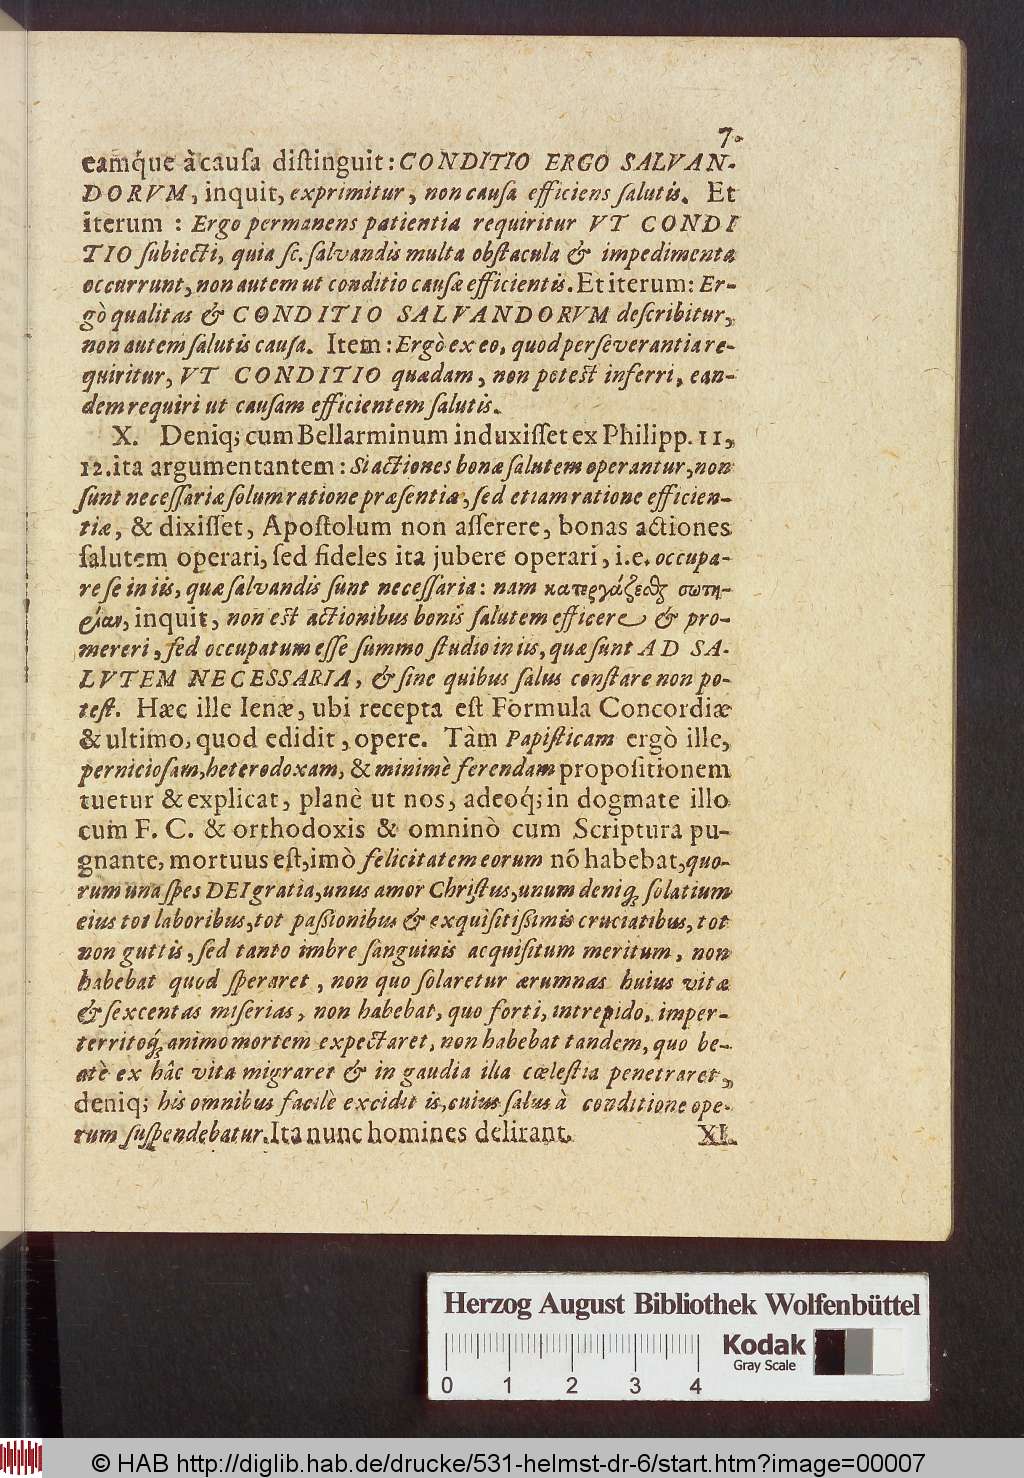 7.
eamq́ue à causa distinguit: CONDITIO ERGO SALVAN-
DORVM, inquit, exprimitur, non causa efficiens salutis. Et
iterum : Ergo permanens patientia requiritur VT CONDI
TIO subiecti, quia sc. salvandis multa obstacula & impedimenta
occurrunt, non autem ut conditio causæ efficientis. Et iterum: Er-
gò qualitas & CONDITIO SALVANDORVM describitur,
non autem salutis causa. Item: Ergò ex eo, quod perseverantia re-
quiritur, VT CONDITIO quædam, non potest inferri, ean-
dem requiri ut causam efficientem salutis.
X. Deniq; cum Bellarminum induxisset ex Philipp. 11,
12. ita argumentantem: Si actiones bonæ salutem operantur, non
sunt necessariæ solum ratione præsentiæ, sed etiam ratione efficien-
tiæ, & dixisset, Apostolum non asserere, bonas actiones
salutem operari, sed fideles ita jubere operari, i.e. occupa-
re se in iis, quæ salvandis sunt necessaria: nam κατεργάζεσθαι σωτη-
ρίαν, inquit, non est actionibus bonis salutem efficere & pro-
mereri, sed occupatum esse summo studio in iis, quæ sunt AD SA-
LVTEM NECESSARIA, & sine quibus salus constare non po-
test. Hæc ille Ienæ, ubi recepta est Formula Concordiæ
& ultimo, quod edidit, opere. Tàm Papisticam ergò ille,
perniciosam, heterodoxam, & minimè ferendam propositionem
tuetur & explicat, planè ut nos, adeoq́; in dogmate illo
cum F. C. & orthodoxis & omninò cum Scriptura pu-
gnante, mortuus est, imò felicitatem eorum nõ habebat, quo-
rum una spes DEI gratia, unus amor Christus, unum deniq; solatium
eius tot laboribus, tot passionibus & exquisitissimis cruciatibus, tot
non guttis, sed tanto imbre sanguinis acquisitum meritum, non
habebat quod speraret, non quo solaretur ærumnas huius vitæ
& sexcentas miserias, non habebat, quo forti, intrepido, imper-
territoq́; animo mortem expectaret, non habebat tandem, quo be-
atè ex hâc vita migraret & in gaudia illa cœlestia penetraret,
deniq; his omnibus facilè excidit is, cuius salus à conditione ope-
rum suspendebatur. Ita nunc homines delirant.
XI.
Herzog August Bibliothek Wolfenbüttel
Kodak
Gray Scale
0 1 2 3 4
© HAB http://diglib.hab.de/drucke/531-helmst-dr-6/start.htm?image=00007